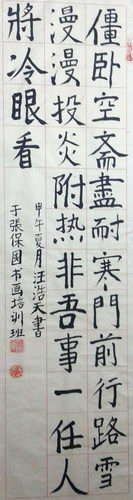 僵卧空斋盡耐寒門前行路雪
漫漫投炎附热非吾事一任人
將冷眼看
甲午夏月汪浩天書
于張保國书画培训班